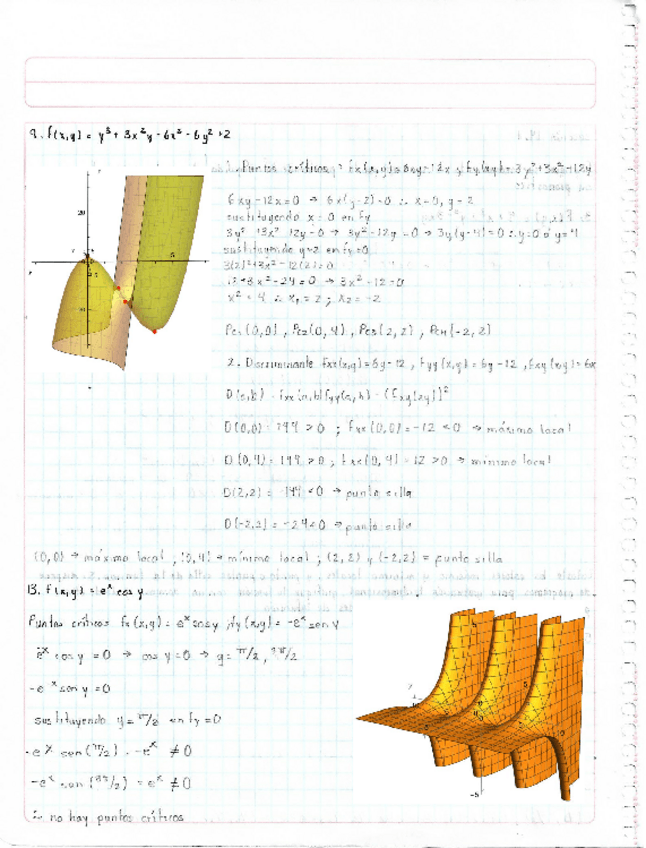 9. f(x,y) = y³ + 3x²y - 6x² - 6y² + 2
1. Puntos críticos: fx(x,y)= 6xy-12x y fy(x,y)= 3y²+3x²-12y
6xy-12x=0 → 6x(y-2)=0 ∴ x=0, y=2
sustituyendo x=0 en fy
3y²+3x²-12y=0 → 3y²-12y=0 → 3y(y-4)=0 ∴ y=0 o y=4
sustituyendo y=2 en fy=0
3(2)²+3x²-12(2)=0
12+3x²-24=0 → 3x²-12=0
x²=4 ∴ x₁=2 ; x₂=-2
Pc₁(0,0), Pc₂(0,4), Pc₃(2,2), Pc₄(-2,2)
2. Discriminante fxx(x,y)=6y-12, fyy(x,y)=6y-12, fxy(x,y)=6x
D(a,b) = fxx(a,b)fyy(a,b) - (fxy(x,y))²
D(0,0)= 144 > 0 ; fxx(0,0)=-12 <0 → máximo local
D(0,4)= 144 >0 ; fxx(0,4)=12 >0 → mínimo local
D(2,2)= -144 <0 → punto silla
D(-2,2)= -24<0 → punto silla
(0,0) → máximo local ; (0,4) → mínimo local ; (2,2) y (-2,2) = punto silla
13. f(x,y) = eˣ cos y
Puntos críticos fx(x,y)= eˣ cos y ; fy(x,y)= -eˣ sen y
eˣ cos y = 0 → cos y = 0 → y= π/2, 3π/2
-eˣ sen y = 0
sustituyendo y= π/2 en fy = 0
-eˣ sen(π/2) = -eˣ ≠ 0
-eˣ sen(3π/2) = eˣ ≠ 0
∴ no hay puntos críticos